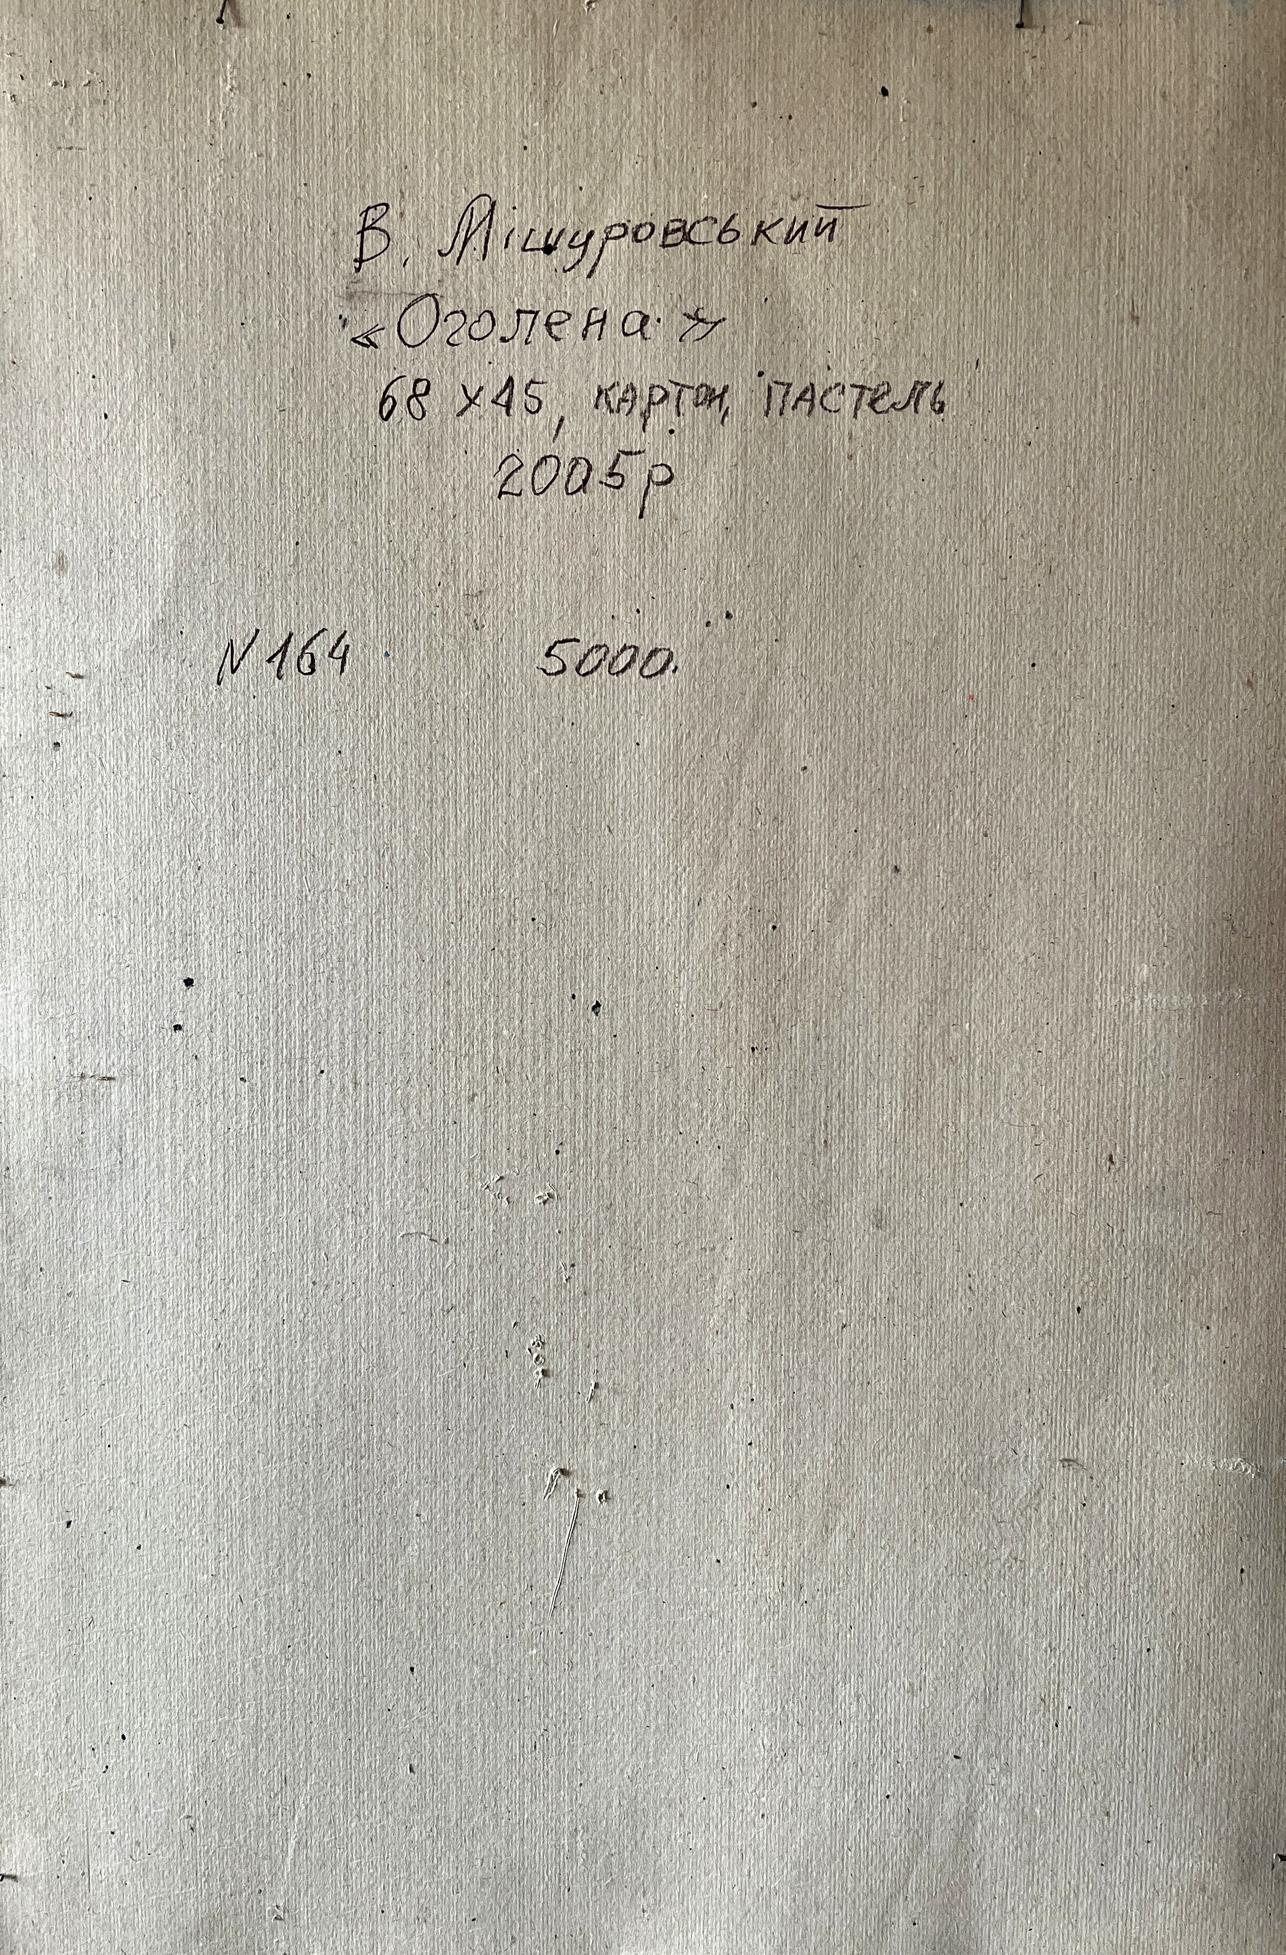 В. Мішуровський
«Оголена»
68 х 45, картон, пастель
2005р
N 164 5000.